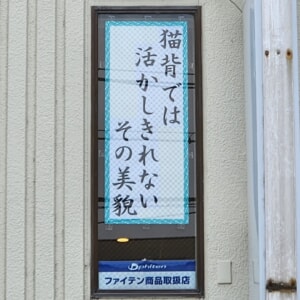 猫背では
活かしきれない
その美貌
phiten
ファイテン商品取扱店